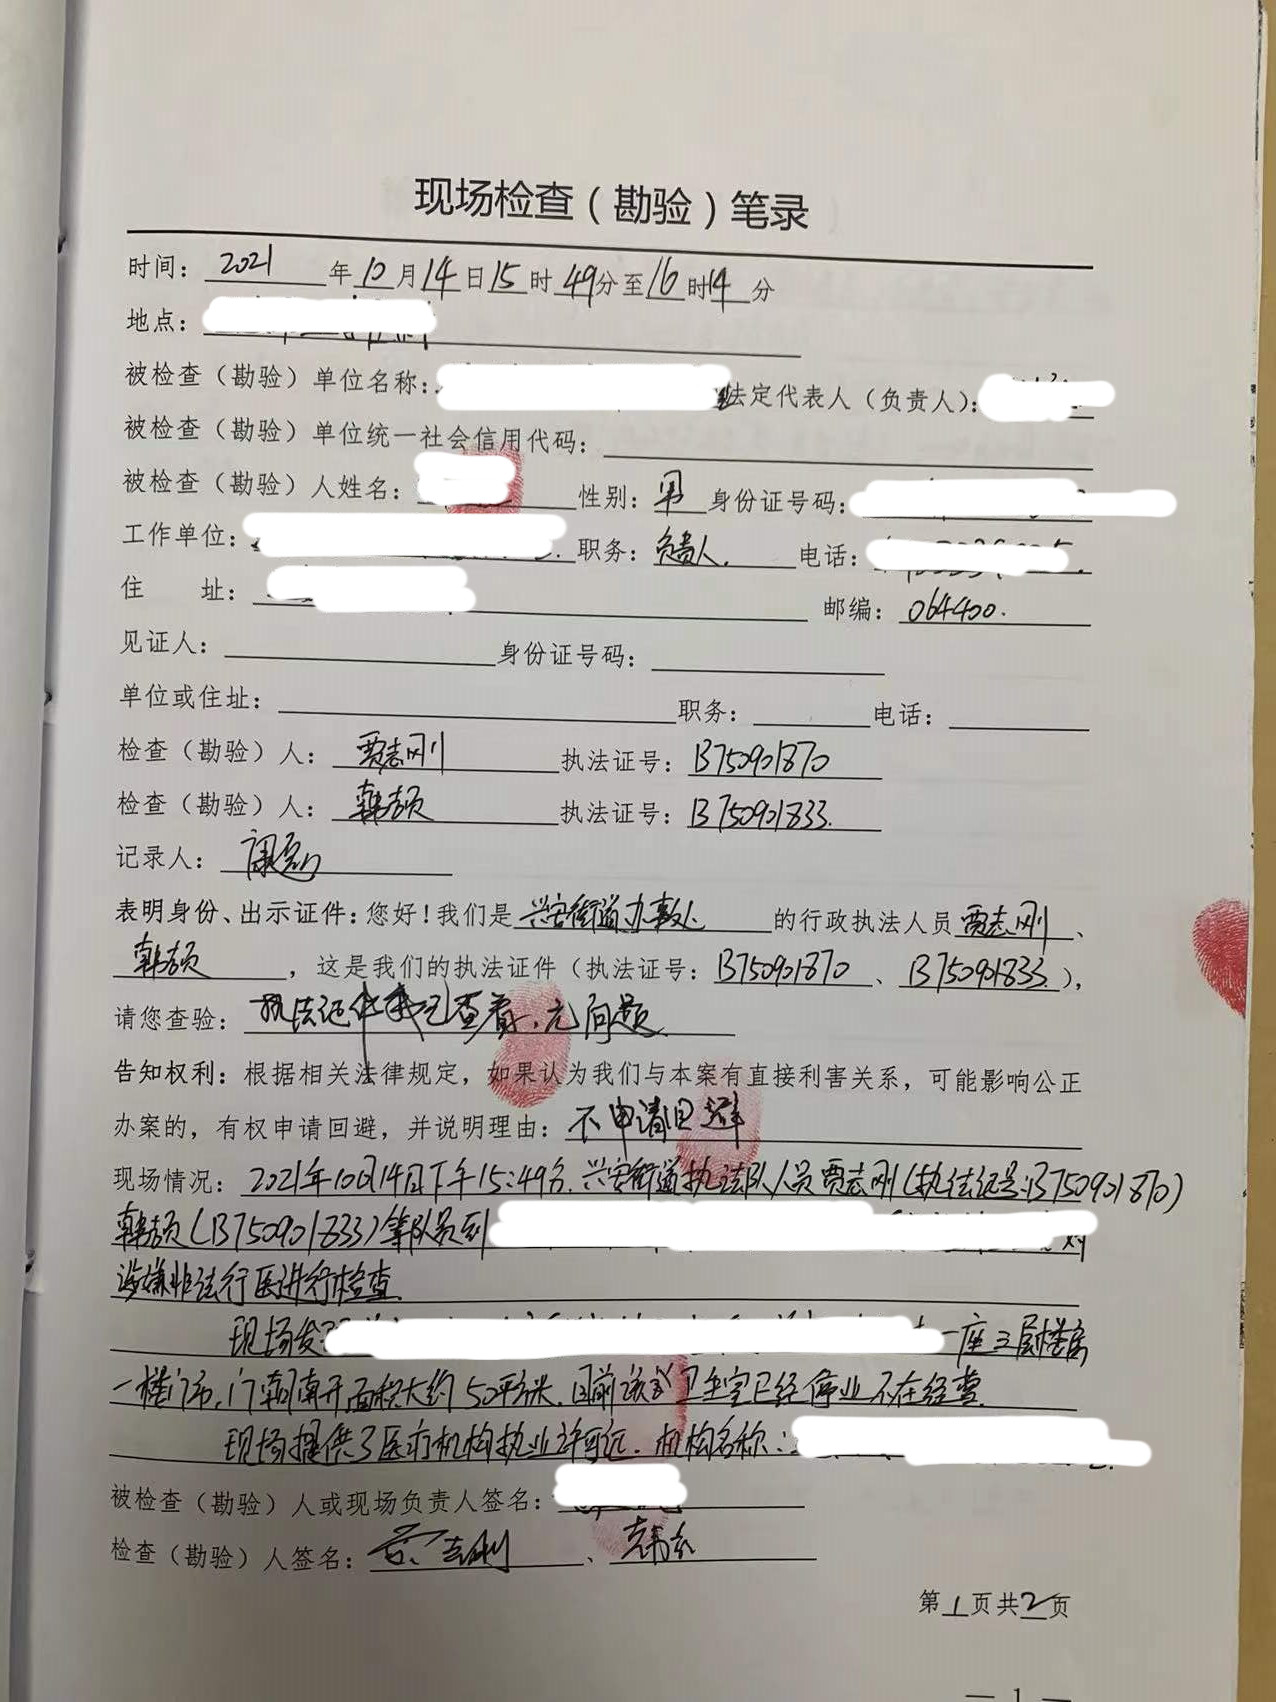 现场检查（勘验）笔录
时间：2021年10月14日15时49分至16时14分
地点：
被检查（勘验）单位名称：法定代表人（负责人）：
被检查（勘验）单位统一社会信用代码：
被检查（勘验）人姓名：性别：男 身份证号码：
工作单位：职务：负责人. 电话：
住　址：邮编：064400.
见证人：身份证号码：
单位或住址：职务：电话：
检查（勘验）人：贾志刚 执法证号：B750901870
检查（勘验）人：韩颉 执法证号：B750901833.
记录人：
表明身份、出示证件：您好！我们是兴安街道办事处的行政执法人员贾志刚、
韩颉，这是我们的执法证件（执法证号：B750901870、B750901833），
请您查验：执法证件我已查看，无问题
告知权利：根据相关法律规定，如果认为我们与本案有直接利害关系，可能影响公正
办案的，有权申请回避，并说明理由：不申请回避
现场情况：2021年10月14日下午15:49分，兴安街道执法队人员贾志刚（执法证号：B750901870）
韩颉（B750901833）等队员到 对
涉嫌非法行医进行检查.
现场发现 一座三层楼房
一楼门市，门朝南开面积大约50平方米，目前该 卫生室已经停业不在经营.
现场提供了医疗机构执业许可证，机构名称：
被检查（勘验）人或现场负责人签名：
检查（勘验）人签名：贾志刚、韩颉
第1页共2页
— 1 —